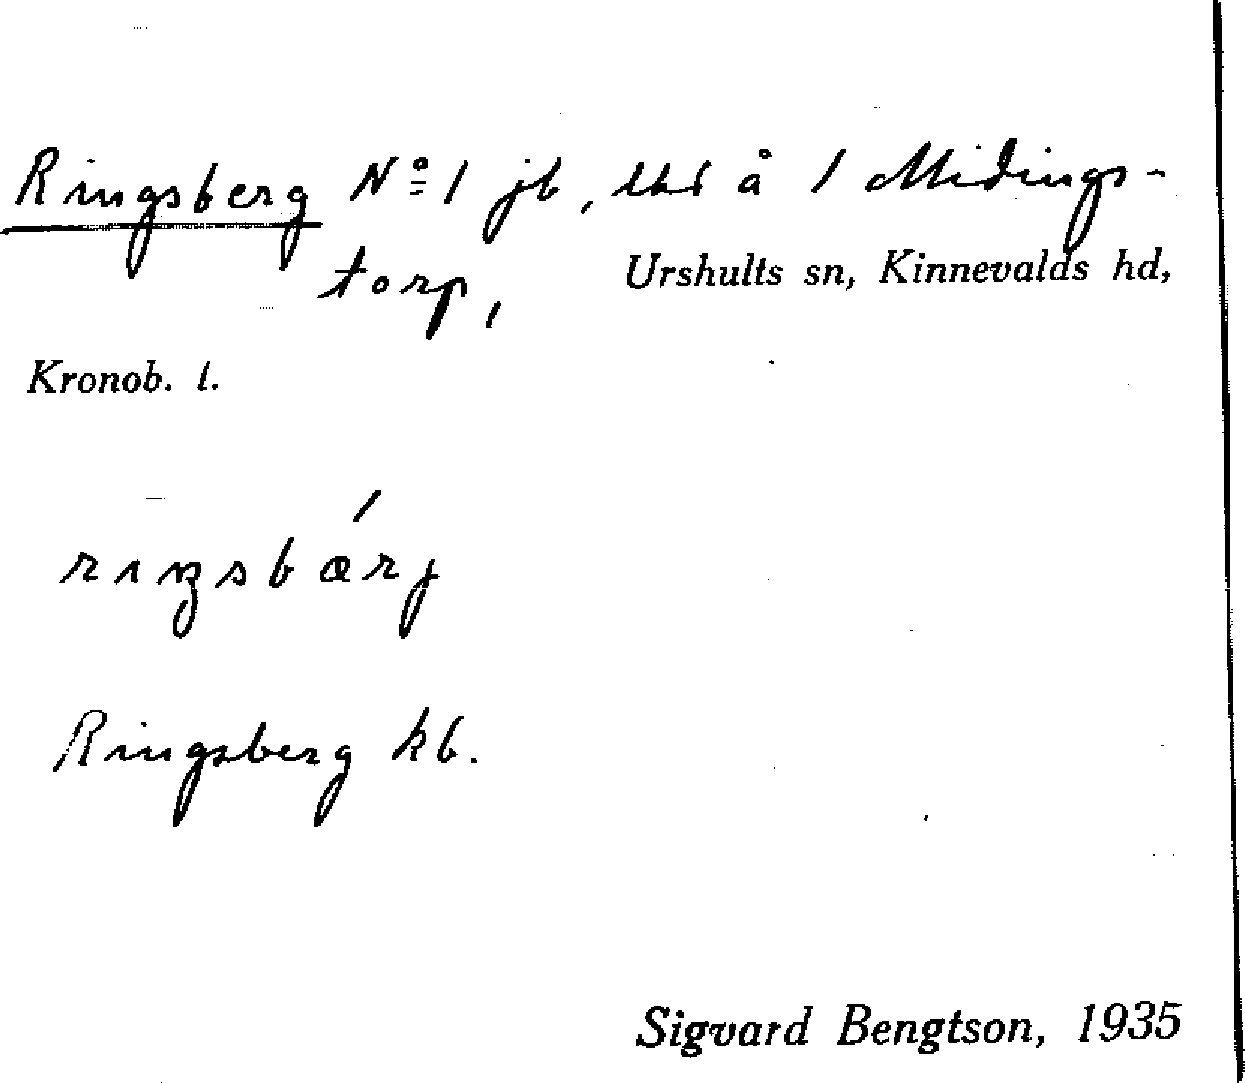 Ringsberg Nº 1 jb, lhd å 1 Midings-
torp, Urshults sn, Kinnevalds hd,
Kronob. l.
rıŋsbærj
Ringsberg kb.
Sigvard Bengtson, 1935